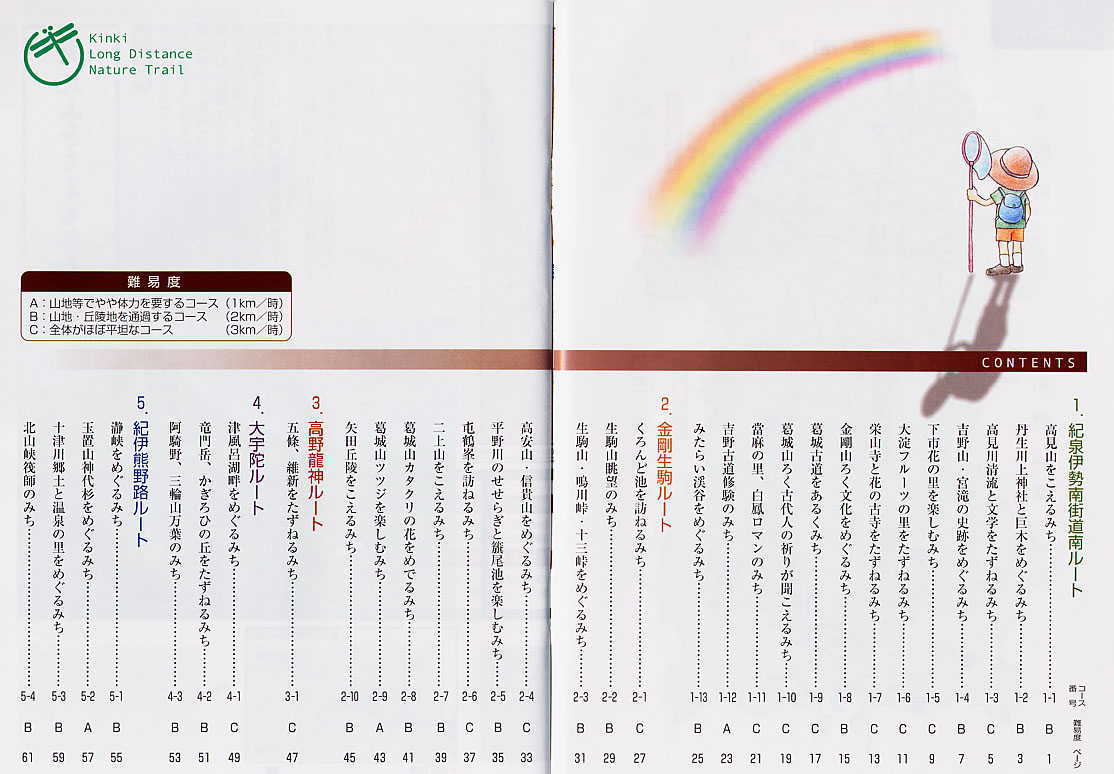 Kinki
Long Distance
Nature Trail
難易度
A：山地等でやや体力を要するコース（1km／時）
B：山地・丘陵地を通過するコース（2km／時）
C：全体がほぼ平坦なコース（3km／時）
CONTENTS
コース番号 難易度 ページ
1. 紀泉伊勢南街道南ルート
高見山をこえるみち…………1-1 B 1
丹生川上神社と巨木をめぐるみち…………1-2 B 3
高見川清流と文学をたずねるみち…………1-3 C 5
吉野山・宮滝の史跡をめぐるみち…………1-4 B 7
下市花の里を楽しむみち…………1-5 C 9
大淀フルーツの里をたずねるみち…………1-6 C 11
栄山寺と花の古寺をたずねるみち…………1-7 C 13
金剛山ろく文化をめぐるみち…………1-8 B 15
葛城古道をあるくみち…………1-9 C 17
葛城山ろく古代人の祈りが聞こえるみち…………1-10 C 19
當麻の里、白鳳ロマンのみち…………1-11 C 21
吉野古道修験のみち…………1-12 A 23
みたらい渓谷をめぐるみち…………1-13 B 25
2. 金剛生駒ルート
くろんど池を訪ねるみち…………2-1 C 27
生駒山眺望のみち…………2-2 B 29
生駒山・鳴川峠・十三峠をめぐるみち…………2-3 B 31
高安山・信貴山をめぐるみち…………2-4 C 33
平野川のせせらぎと籏尾池を楽しむみち…………2-5 B 35
屯鶴峯を訪ねるみち…………2-6 C 37
二上山をこえるみち…………2-7 B 39
葛城山カタクリの花をめでるみち…………2-8 B 41
葛城山ツツジを楽しむみち…………2-9 A 43
矢田丘陵をこえるみち…………2-10 B 45
3. 高野龍神ルート
五條、維新をたずねるみち…………3-1 C 47
4. 大宇陀ルート
津風呂湖畔をめぐるみち…………4-1 C 49
竜門岳、かぎろひの丘をたずねるみち…………4-2 B 51
阿騎野、三輪山万葉のみち…………4-3 B 53
5. 紀伊熊野路ルート
瀞峡をめぐるみち…………5-1 B 55
玉置山神代杉をめぐるみち…………5-2 A 57
十津川郷土と温泉の里をめぐるみち…………5-3 B 59
北山峡筏師のみち…………5-4 B 61